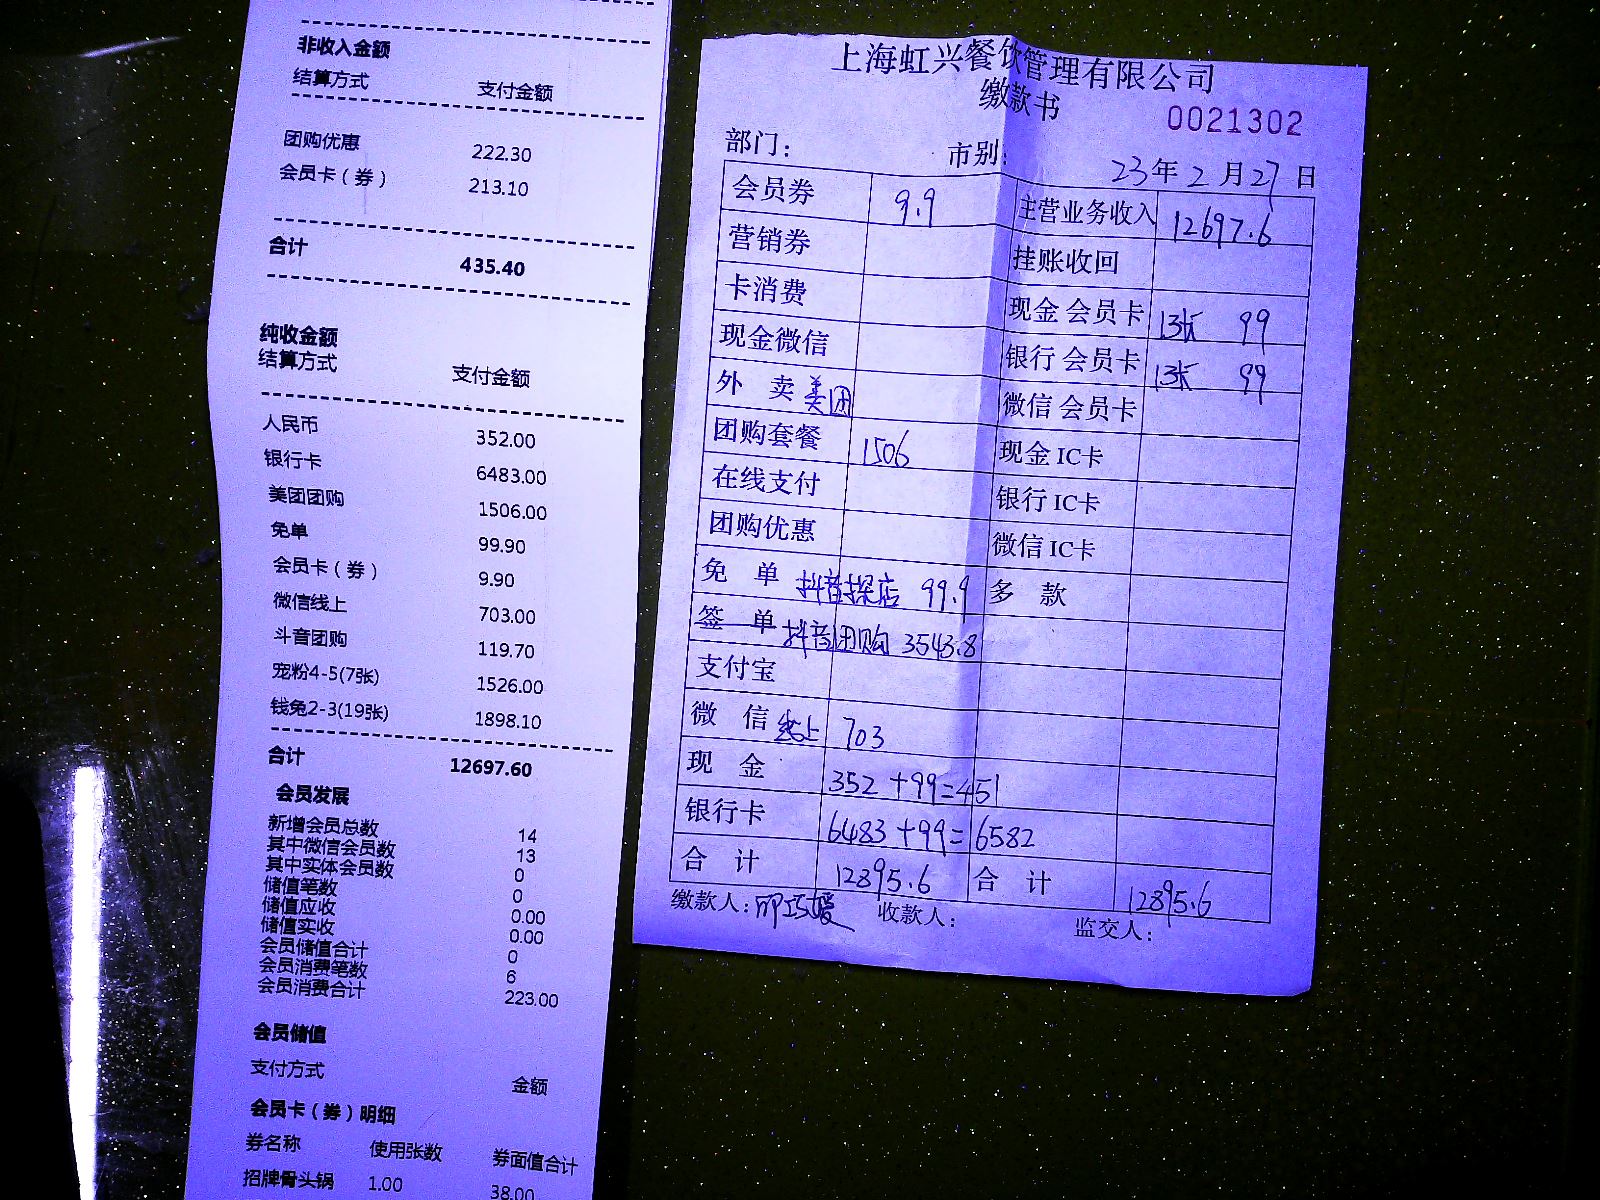 非收入金额
结算方式 支付金额
团购优惠 222.30
会员卡（券） 213.10
合计 435.40
纯收金额
结算方式 支付金额
人民币 352.00
银行卡 6483.00
美团团购 1506.00
免单 99.90
会员卡（券） 9.90
微信线上 703.00
斗音团购 119.70
宠粉4-5(7张) 1526.00
钱兔2-3(19张) 1898.10
合计 12697.60
会员发展
新增会员总数 14
其中微信会员数 13
其中实体会员数 0
储值笔数 0
储值应收 0.00
储值实收 0.00
会员储值合计 0
会员消费笔数 6
会员消费合计 223.00
会员储值
支付方式 金额
会员卡（券）明细
券名称 使用张数 券面值合计
招牌骨头锅 1.00 38.00
上海虹兴餐饮管理有限公司
缴款书
0021302
部门： 市别： 23年2月27日
会员券 9.9 主营业务收入 12697.6
营销券 挂账收回
卡消费 现金 会员卡 13张 99
现金微信 银行 会员卡 13张 99
外 卖 美团 微信 会员卡
团购套餐 1506 现金 IC卡
在线支付 银行 IC卡
团购优惠 微信 IC卡
免 单 抖音探店 99.9 多 款
签 单 抖音团购 3543.8
支付宝
微 信 线上 703
现 金 352+99=451
银行卡 6483+99=6582
合 计 12895.6 合 计 12895.6
缴款人： 收款人： 监交人：